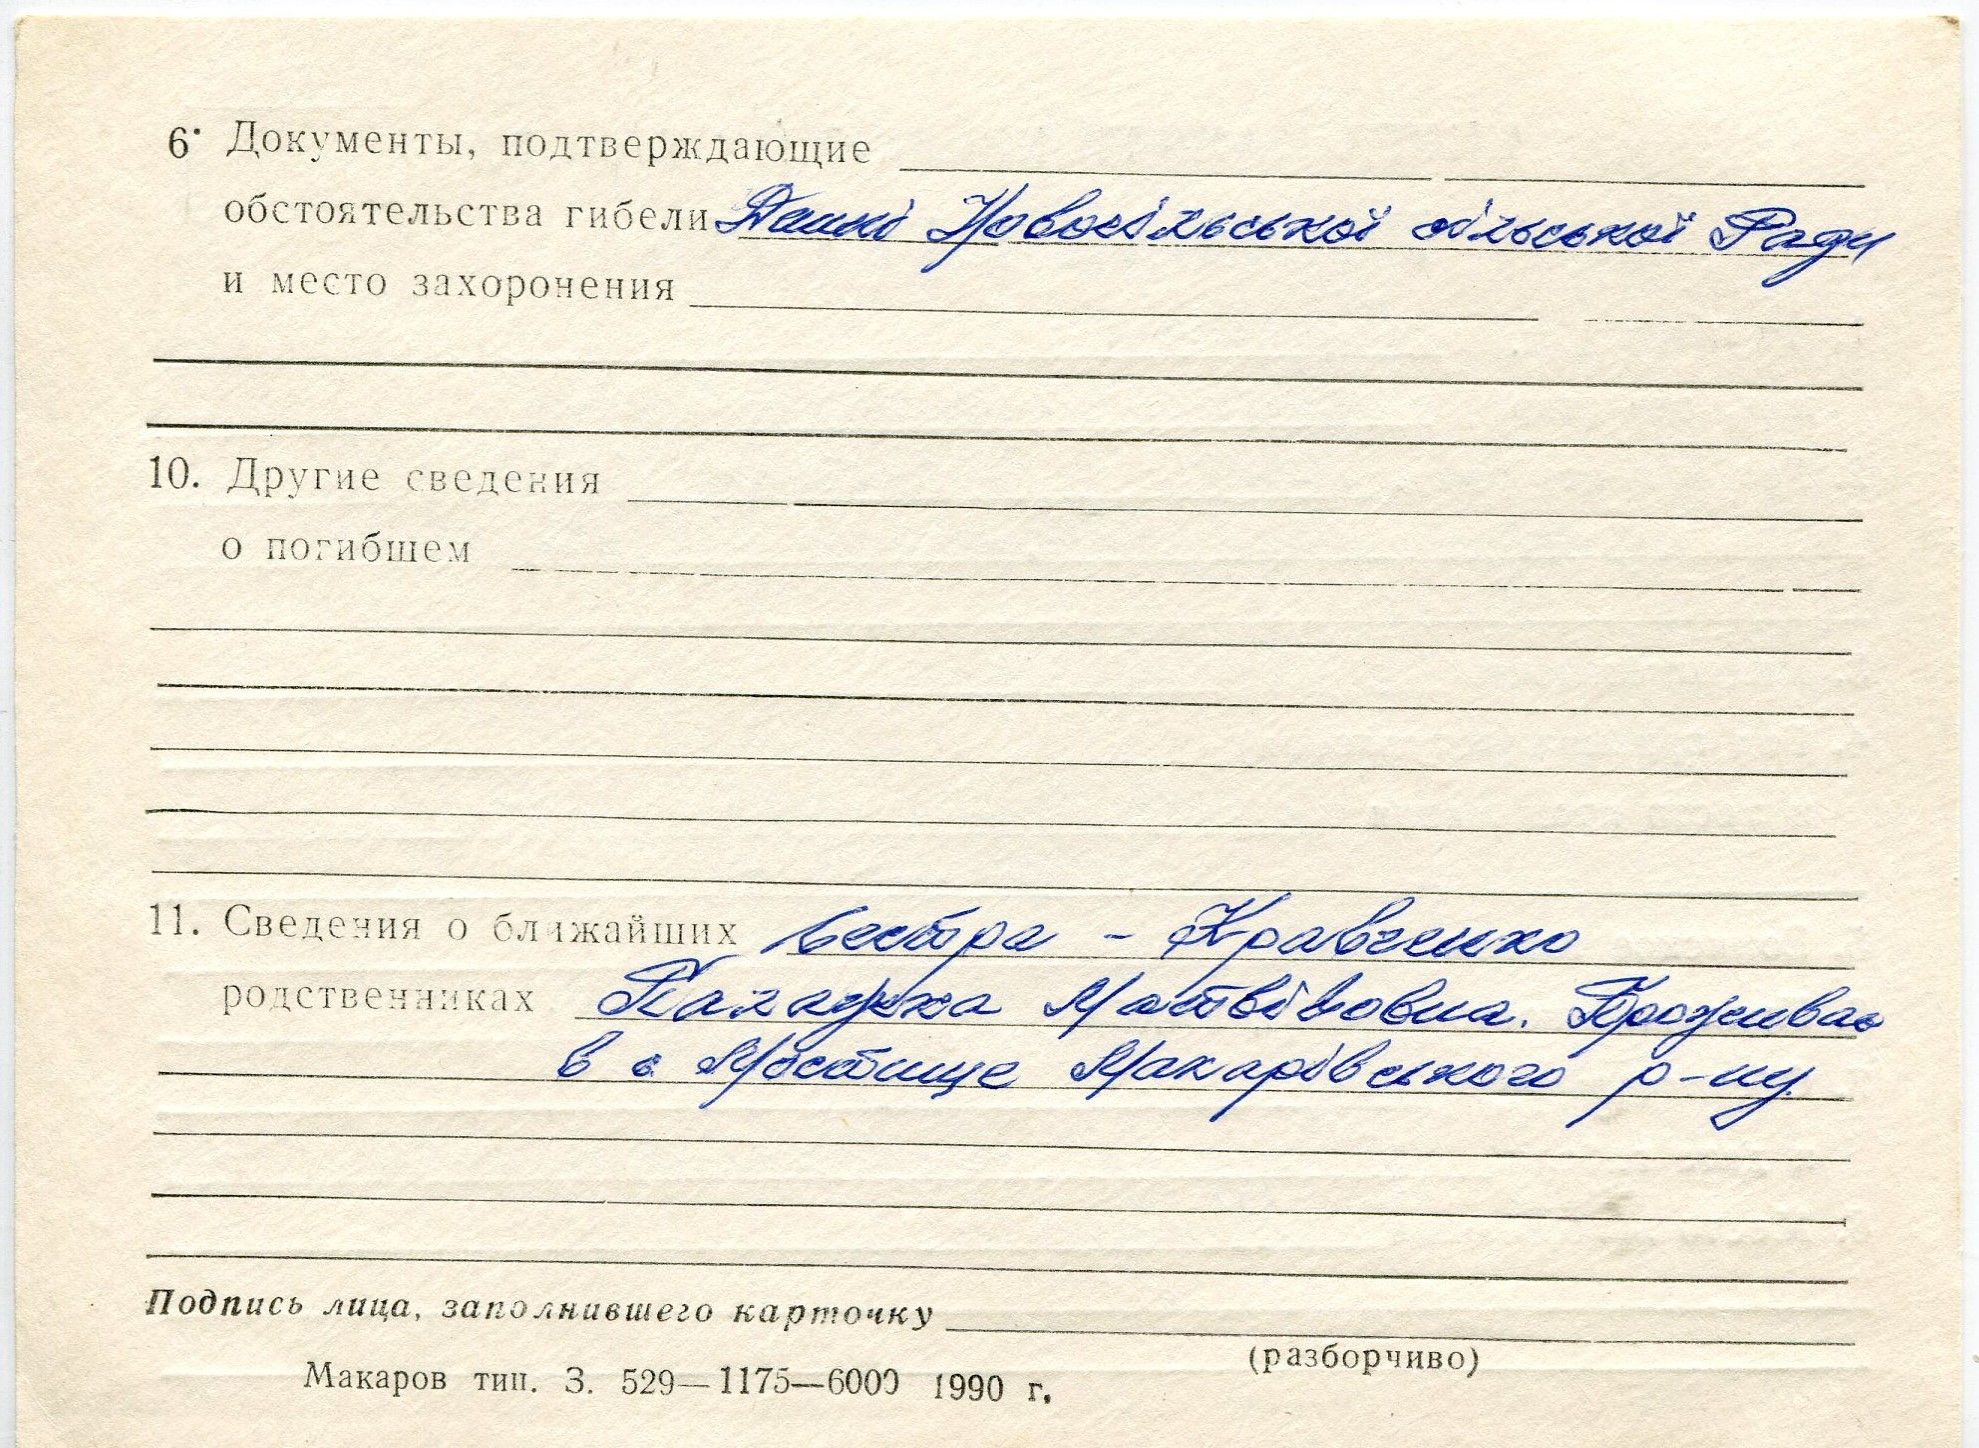 6. Документы, подтверждающие
обстоятельства гибели Дані Новосільської сільської Ради
и место захоронения
10. Другие сведения
о погибшем
11. Сведения о ближайших сестра - Кравченко
родственниках Палажка Матвіївовна. Проживає
в с Мостище Макарівського р-ну.
Подпись лица, заполнившего карточку
(разборчиво)
Макаров тип. З. 529—1175—6000 1990 г.